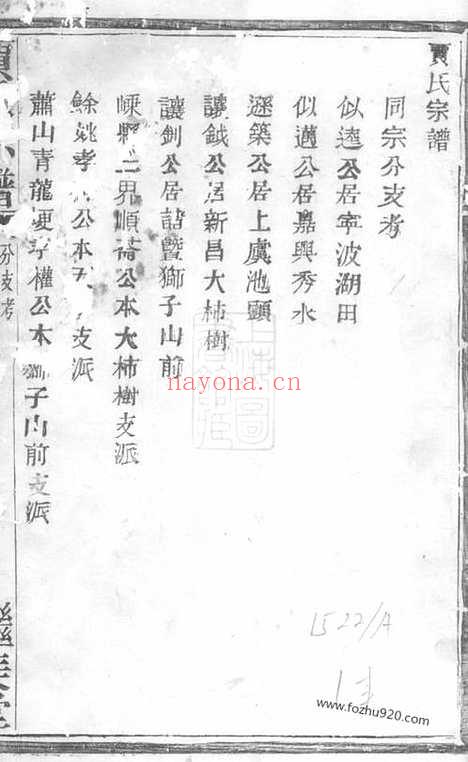 賈氏宗譜
同宗分支考
似逵公居寧波湖田
似邁公居嘉興秀水
遜築公居上虞池頭
讓鉞公居新昌大柿樹
讓釗公居諸暨獅子山前
嵊縣二界順 公本大柿樹支派
餘姚孝 公本 支派
蕭山青龍 享權公本 獅子山前支派
分支考
nayona.cn
1522/A
www.fozhu920.com